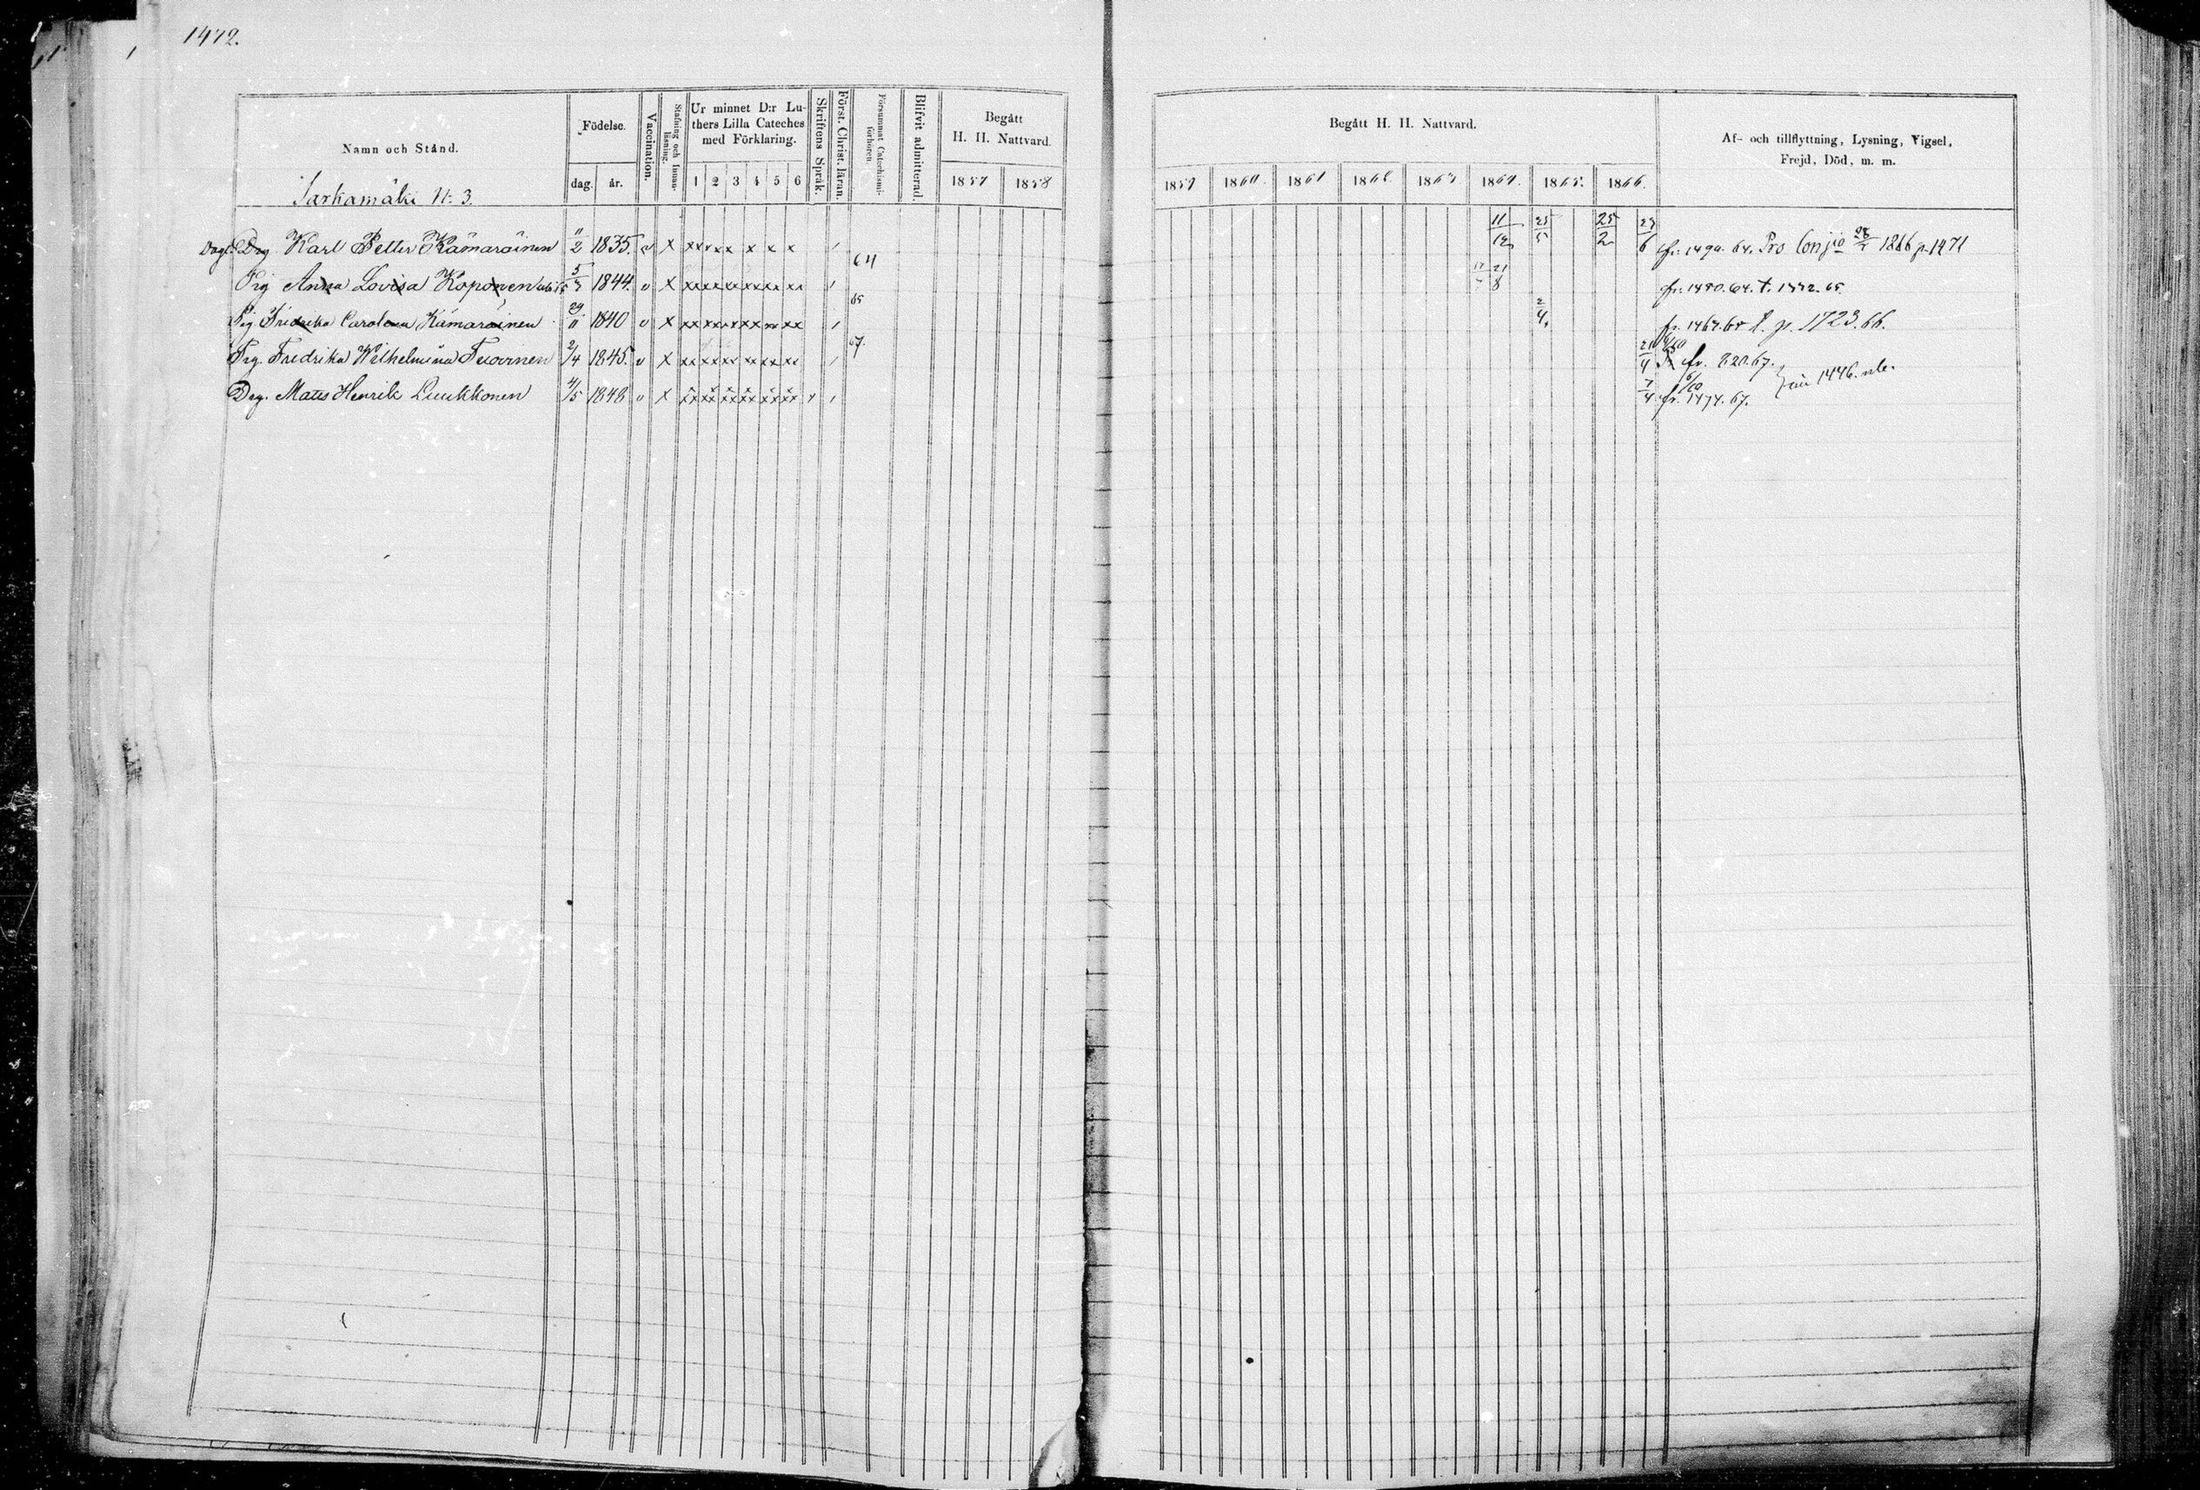 1472.
Namn och Stånd.
Födelse.
dag.
år.
Vaccination.
Stafning och Innanläsning.
Ur minnet D:r Luthers Lilla Cateches med Förklaring.
1 2 3 4 5 6
Skriftens Språk.
Först. Christ. läran.
Försummat Catechismiförhören.
Blifvit admitterad.
Begått H. H. Nattvard.
1857 1858
Begått H. H. Nattvard.
1859 1860 1861 1862 1863 1864. 1865. 1866.
Af- och tillflyttning, Lysning, Vigsel, Frejd, Död, m. m.
Sarkamäki N: 3.
Drg Karl Petter Kämäräinen 11/2 1835. v x xx x xx x x x 11/12 25/5 25/2 29/6 fr. 1490. 64. Pro Conjio 1866 p. 1471
64
Pig Anna Lovisa Koponen 5/3 1844. v x xx xx xx xx xx xx 21/8 fr. 1480. 64. t. 1442. 65
65
Pig Fredrika Carolina Kämäräinen 29/11 1840 v x xx xx xx xx xx xx 2/4 fr. 1467. 65 t. p. 1723. 66.
67.
Pig. Fredrika Wilhelmina Tuovinen 2/4 1845. v x xx xx xx xx xx xx 21/4 fr. 820. 67.
Drg. Mats Henrik Luukkonen 4/5 1848 v x xx xx xx xx xx xx 7/4 fr. 1474. 67.
1446.